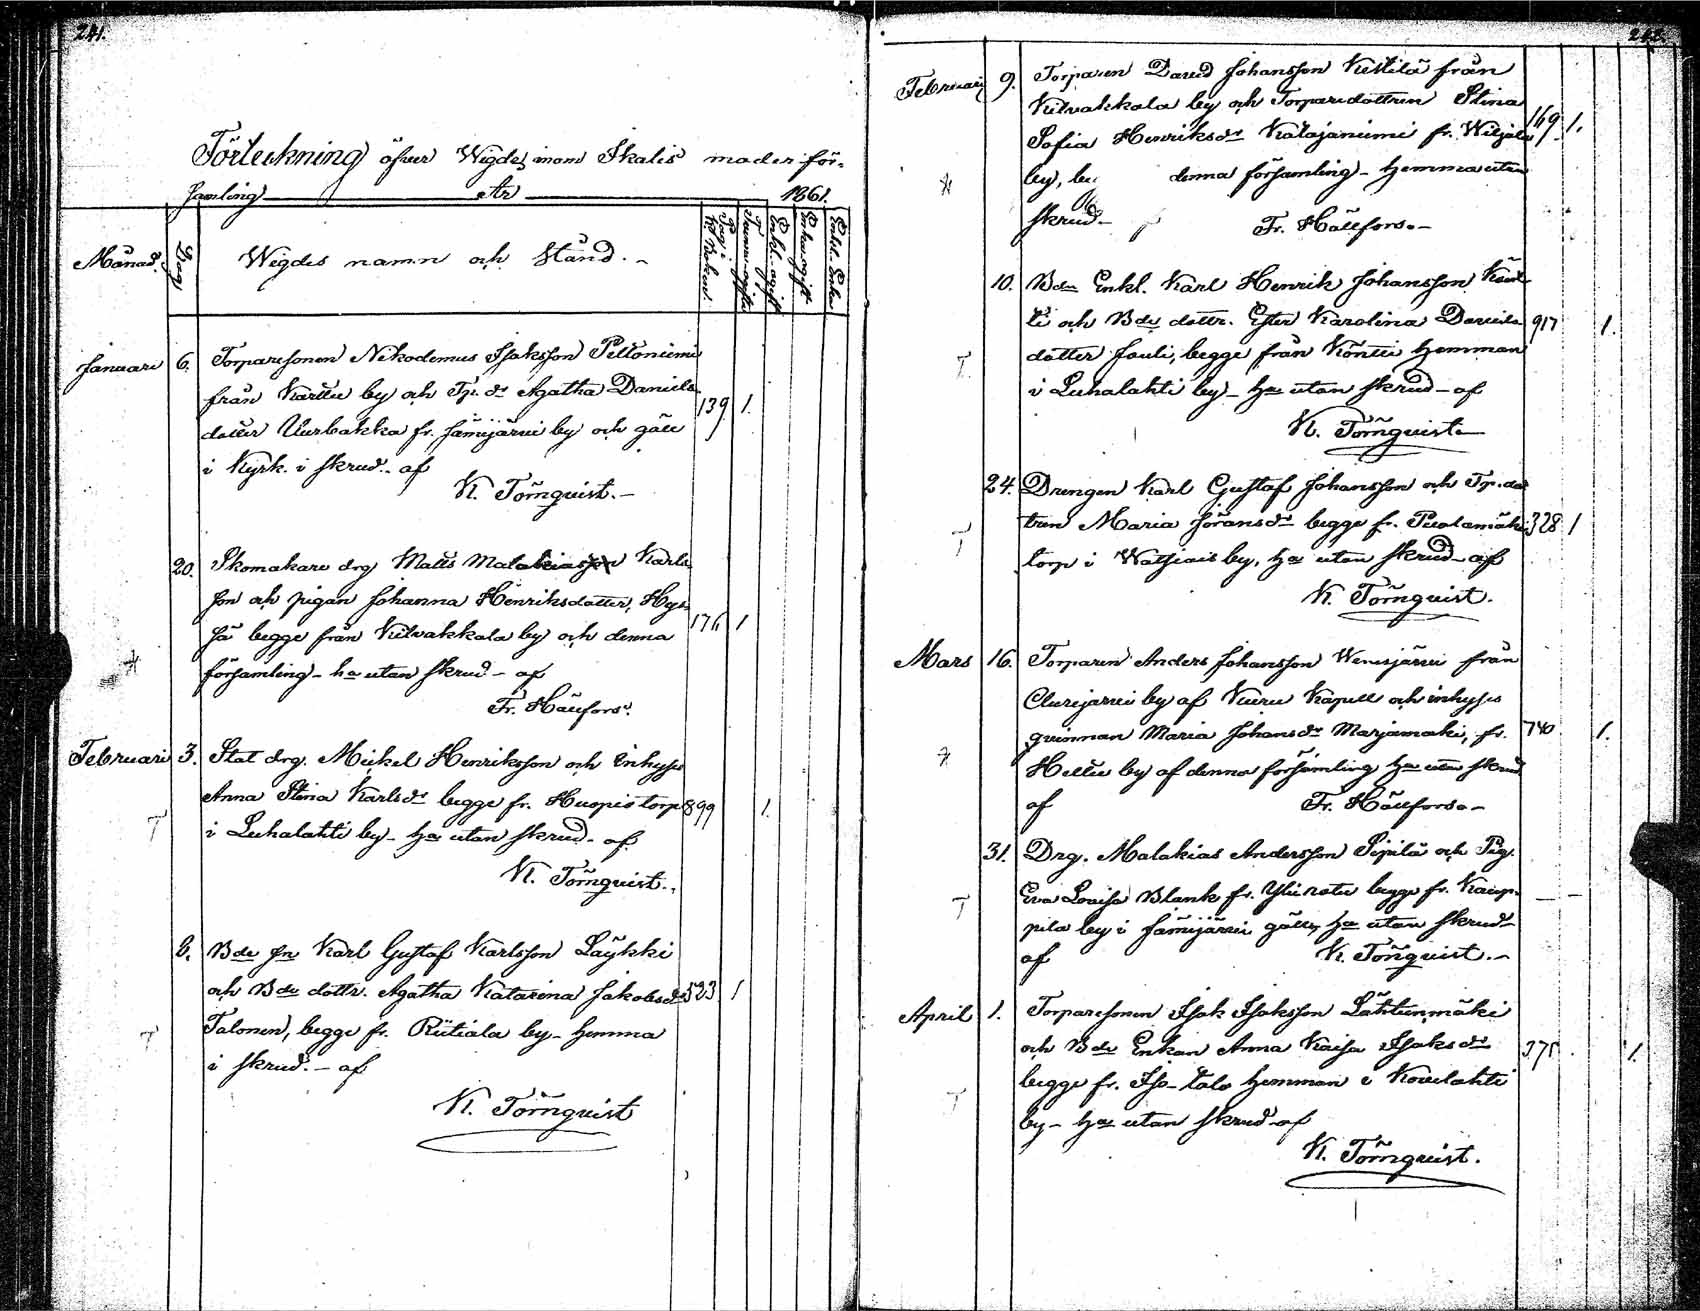 241.
Förteckning öfver Wigde inom Ikalis moder för-
samling År 1861.
Månad. Dag Wigdes namn och Stånd. Pag. i K. Boken. Enkl. Enka
Januari 6. Torparesonen Nikodemus Isaksson Peltoniemi
från Karttu by och Tp. dr Agatha Daniels
dotter Uurbakka fr. Jämijärvi by och gäll 139 1.
i Kyrk. i skrud. af
K. Törnqvist.
20. Skomakare drg Matts Malakiasson Karls
son och pigan Johanna Henriksdotter,
begge från Kilvakkala by och denna 176 1
församling - ha utan skrud - af
Fr. Hällfors.
Februari 3. Stat drg. Mickel Henriksson och Inhyses
Anna Stina Karlsdr begge fr. Huopis torp 899 1.
i Luhalahti by - ha utan skrud - af
K. Törnqvist.
6. Bde sn Karl Gustaf Karlsson Läykki
och Bde dottr. Agatha Katarina Jakobsdr 523 1
Talonen, begge fr. Riitiala by - hemma
i skrud. - af
K. Törnqvist
242.
Februari 9. Torparen David Johansson Kettilä från
Kilvakkala by och Torparedottren Stina
Sofia Henriksdr Katajaniemi fr. Wiljala 169 1.
by, denna församling - hemma utan
skrud - Fr. Hällfors. -
10. Bde Enkl. Karl Henrik Johansson Könt-
ti och Bde dottr. Ester Karolina Daniels 917 1.
dotter Jouli, begge från Köntti hemman
i Luhalahti by - ha utan skrud - af
K. Törnqvist
24. Drengen Karl Gustaf Johansson och Tp. dot
tren Maria Göransdr begge fr. Puolamäki 328 1
torp i Watsiais by, ha utan skrud - af
K. Törnqvist.
Mars 16. Torparen Anders Johansson Wenesjärvi från
by af Kuru Kapell och inhyses
qvinnan Maria Johansdr Marjamäki, fr. 740 1.
Heittu by af denna församling ha utan skrud
af Fr. Hällfors. -
31. Drg. Malakias Andersson Sipilä och Pig.
Eva Lovisa Blank fr. Ylinätu begge fr. Karp- — —
pila by i Jämijärvi gäll, ha utan skrud
af K. Törnqvist. -
April 1. Torparesonen Isak Isaksson Lähteenmäki
och Bde Enkan Anna Kaisa Isaksdr 375 1.
begge fr. Iso-talo hemman i Kovelahti
by - ha utan skrud - af
K. Törnqvist.